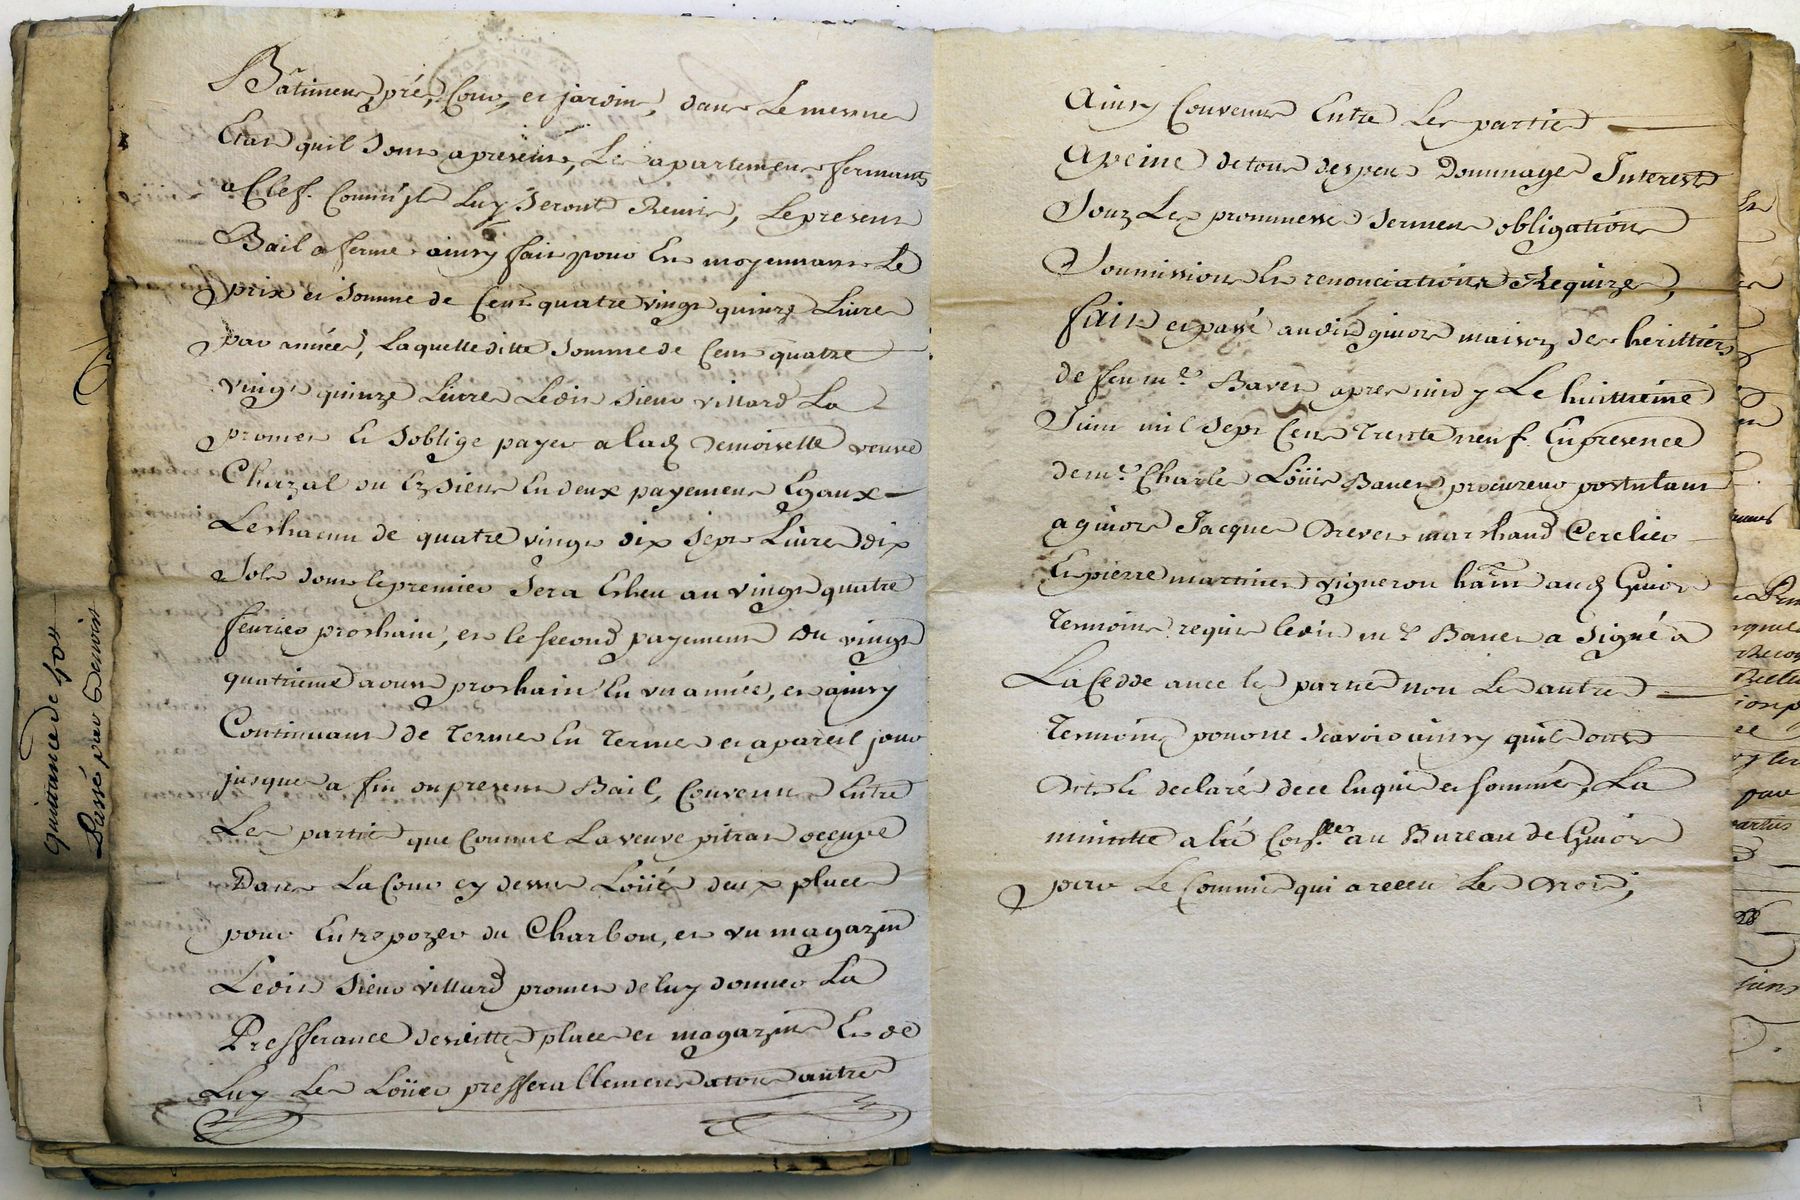 Bâtimens, pré, Cour, et jardin, dans le mesme
Etat quil sont apresent, Les apartements fermants
a Clef. Comm'jls luy seront Remis, Le present
Bail a ferme ainsy fait pour Et moyennant le
prix et somme de Cent quatre vingt quinze Livres
par année, Laquelle ditte somme de Cent quatre
vingt quinze Livres Ledit sieur villard La
promet Et soblige payer a lad. demoiselle veuve
Chazal ou Ez siens En deux payements Egaux
Leshacun de quatre vingt dix sept Livres dix
sols dont le premier sera Esheu au vingt quatre
feuvrier proshain, et le second payement du vingt
quatrieme aoust proshain En un année, et ainsy
Continuant de Terme En Terme et apareil jour
jusques a fin du present Bail, Convenu Entre
Les parties que Comme La veuve pitrat occupe
Dans La Cour cy dessus Loüée deux places
pour Entrepozer du Charbon, et un magazin
Ledit sieur villard promet de luy donner La
Prefferance desdittes places et magazins Et de
Luy Les Loüer prefferallement a tout autre
Ainsy Convenu Entre Les parties
Apeine de tous despens Dommages Interests
Souz Les prommesses serment obligations
Soumissions Et renonciations Requizes,
fait et passé audit givors maison des herittiers
de feu me. Baver apres midy Le huittième
Juin mil sept Cent Trente neuf. En presence
de me. Charle Loüis Baver procureur postulant
a givors Jacques Drevet marshand Cerclier
Et pierre martinet vigneron habint. aud. Givors
Temoins requis ledit me. Baver a signé a
La Cedde avec les parties non Les autres
Temoins pour ne scavoir ainsy quils ont
declaré de ce Enquis et sommés, La
minutte a été Conslée. au Bureau de Givors
par Le Commis qui a receu Les droits;
quittance de 40s
Passé par Demoise